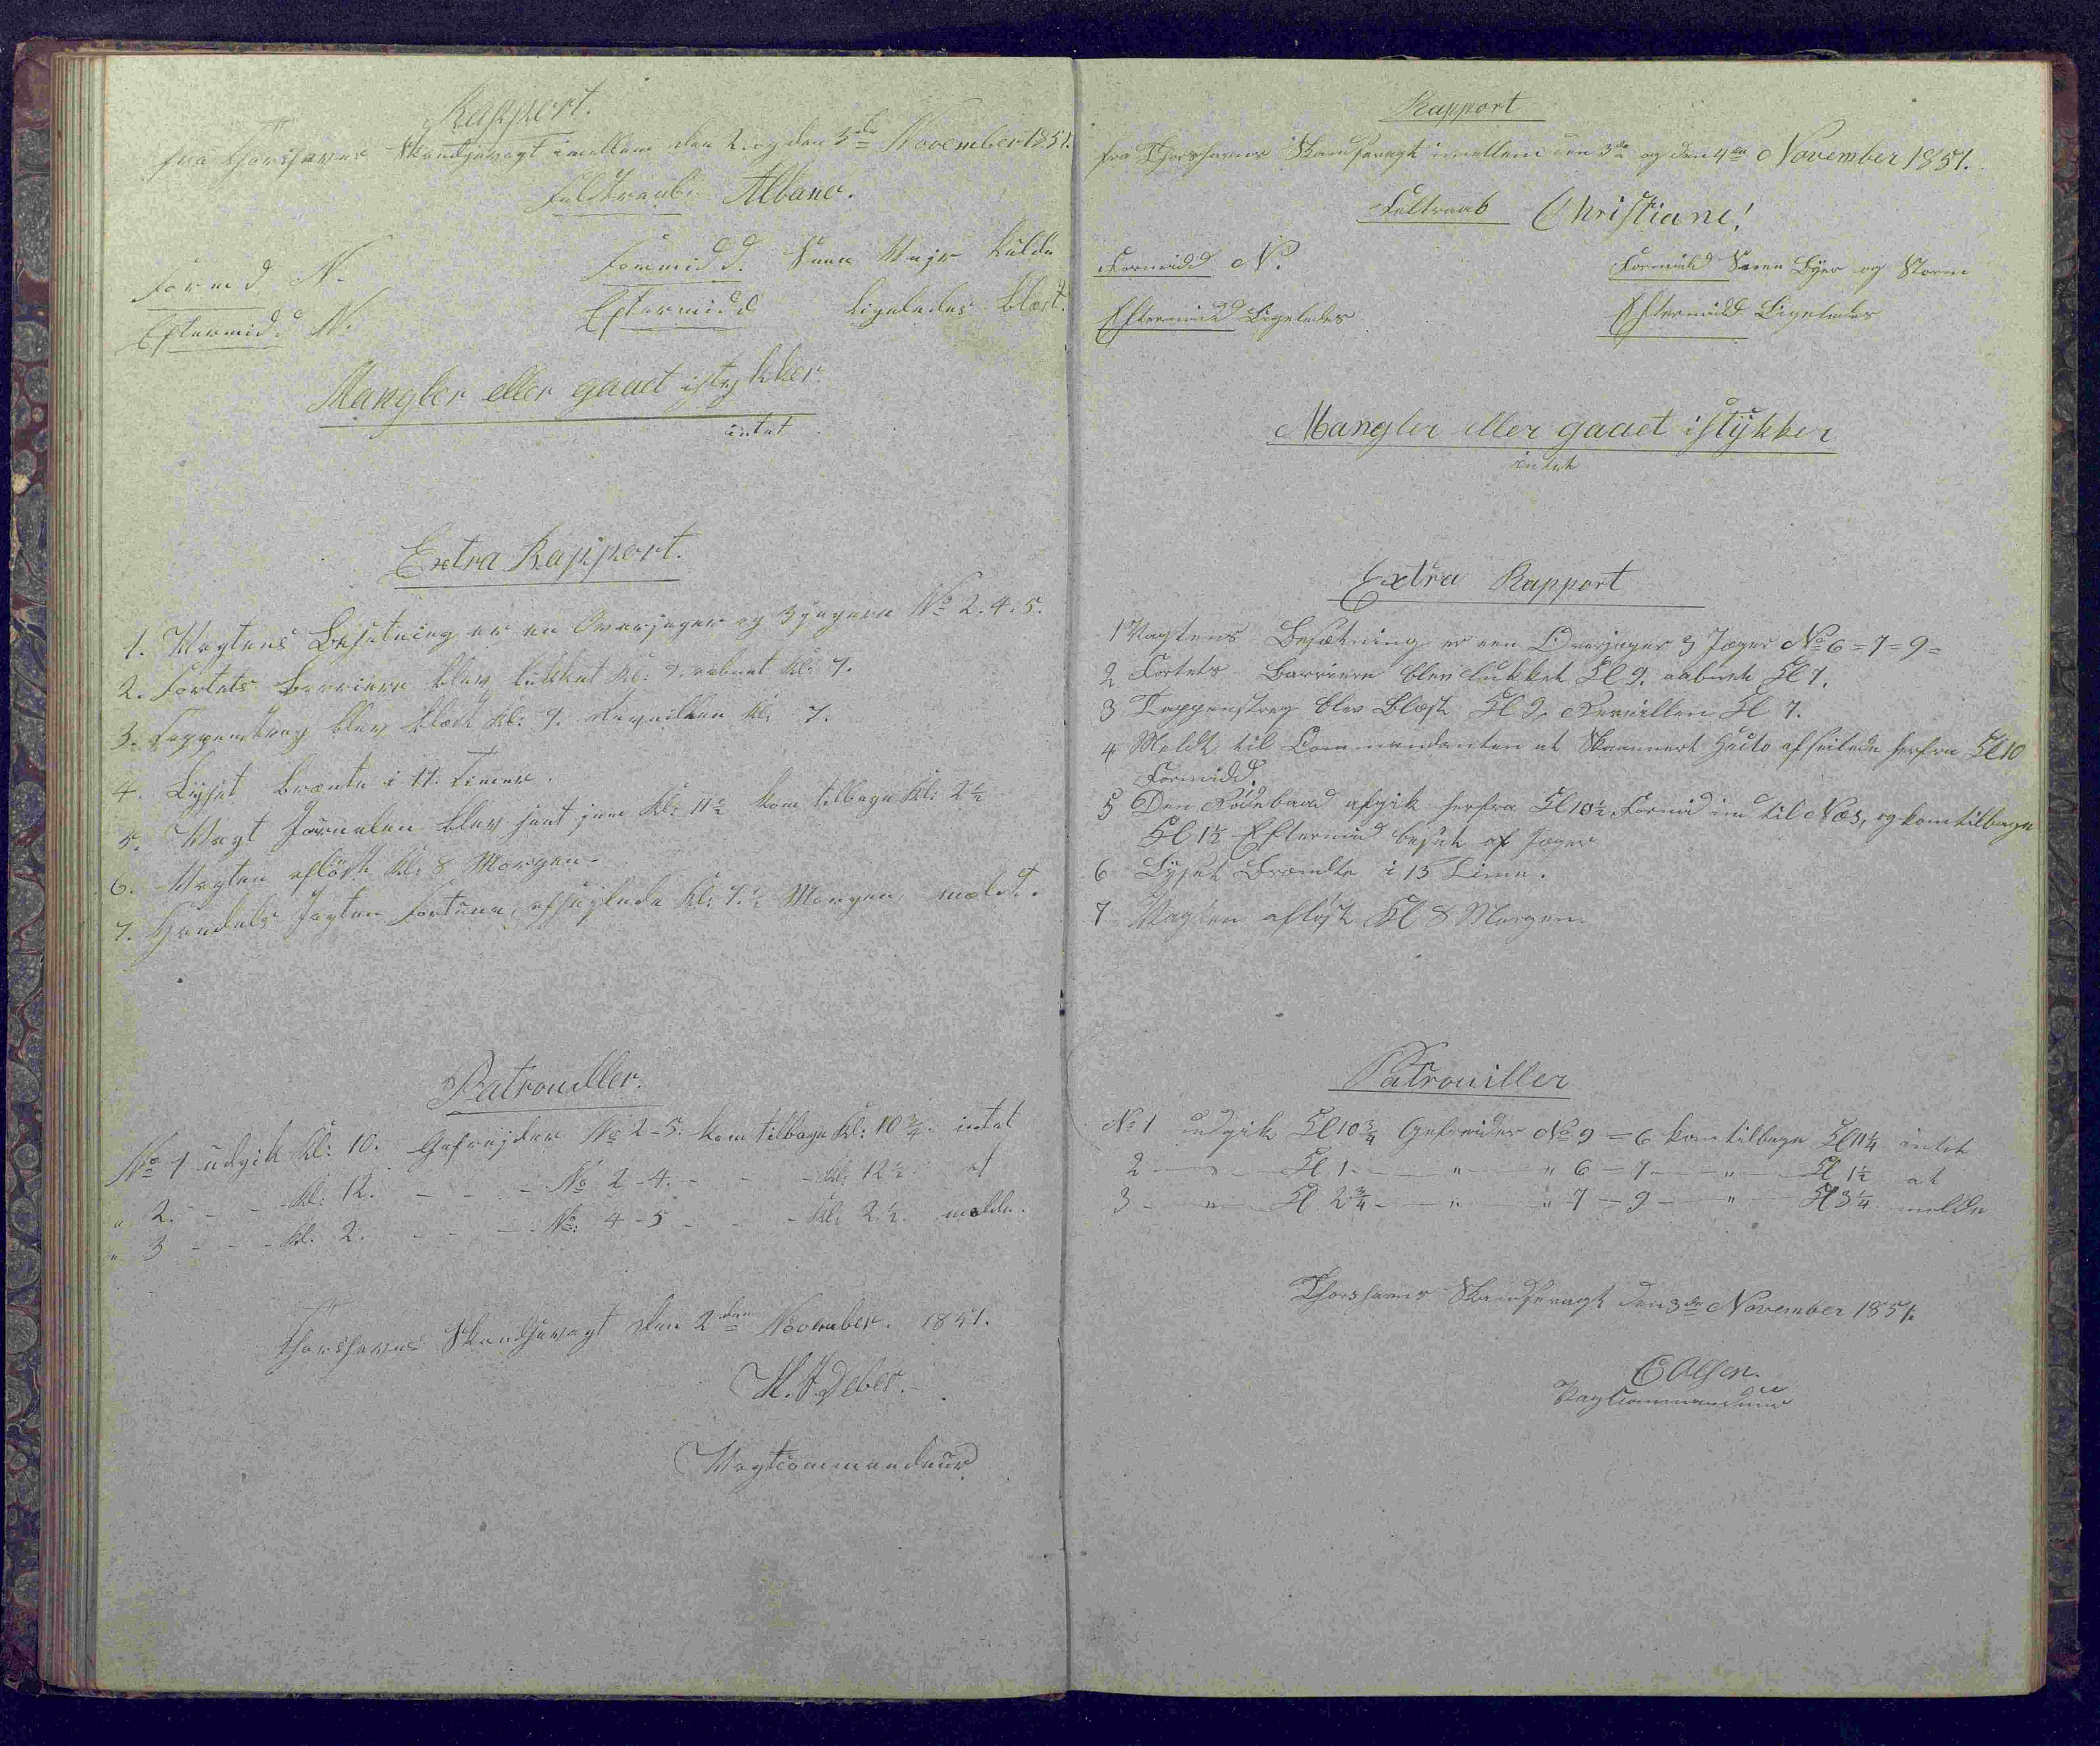 Rapport.
fra Thorshavns Skandsevagt imellem den 2. og den 3die November 1851.
Feldtraab. Albano.
Formd N.
Formidd. Kulde
Eftermidd N.
Eftermidd Ligeledes Blæst.
Mangler eller gaaet istykker.
intet
Extra Rapport.
1. Vagtens Besætning er en Overjæger og 3 Jægere No 2. 4. 5.
2. Fortets Barriere blev lukket Kl: 9. aabnet Kl: 7.
3. Tappenstreg blev blæst Kl: 9. Reveillen Kl: 7.
4. Lyset brænte i 14 Timer.
5. Vagt Journalen blev sent Kl: 11½ kom tilbage Kl: 2½
6. Vagten afløst Kl: 8 Morgen.
7. Handels Jagten Fortuna, afseglede Kl: 7½ Morgen, meldt.
Patrouiller.
No 1 udgik Kl: 10. Gefrejder No 2-5. kom tilbage Kl: 10¾. intet
" 2. - - - Kl: 12. - - - No 2-4. - - - Kl: 12½ at
" 3 - - - Kl: 2. - - - No: 4-5 - - - Kl: 2½. melde.
Thorshavns Skandsevagt den 2den November. 1851.
Vagtcommandeur
Rapport
fra Thorshavns Skandsevagt imellem den 3die og den 4de November 1851.
Feltraab Christiane!
Formidd N.
Formidd Byer og Storm
Eftermidd Ligeledes
Eftermidd Ligeledes
Mangler eller gaaet istykker
intet
Extra Rapport
1 Vagtens Besætning er een Overjæger 3 Jæger No 6=7=9=
2 Fortets Barriere blev lukket Kl 9. aabnet Kl 7.
3 Tappenstreg blev Blæst Kl 9. Reveillen Kl 7.
4 Meldt til Commandanten at Skonnert afseilede herfra Kl 10
Formidd.
5 Den afgik herfra Kl 10½ Formid ind til Næs, og kom tilbage
Kl 1½ Eftermid besat af Jæger
6 Lyset Brændte i 15 Time.
7 Vagten afløst Kl 8 Morgen.
Patrouiller
No 1 udgik Kl 10¾ Gefreider No 9=6 kom tilbage Kl 11¼ intet
2 - " - Kl 1. - " - " 6=7 - " - Kl 1½ at
3 - " - Kl 2¾ - " - " 7=9 - " - Kl 3¼ melde
Thorshavns Skandsevagt den 3die November 1851.
Olsen.
Vagtcommandeur